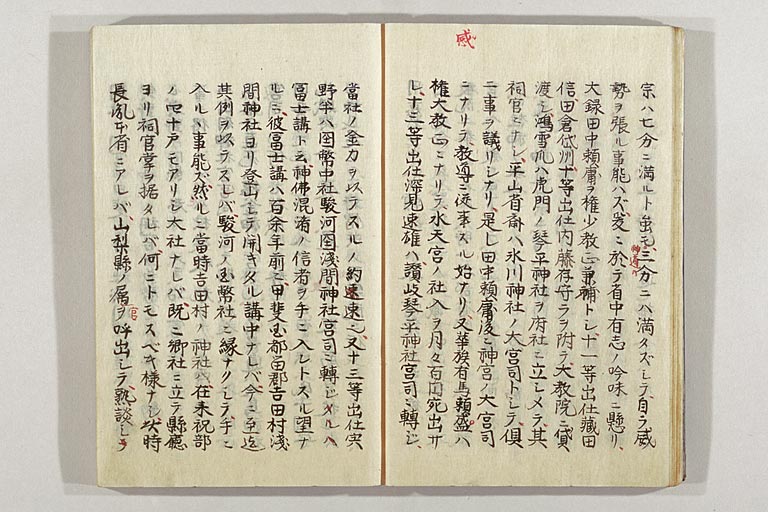 感
宗ハ七分ニ満ルト虽モ三分ニハ満タズシテ自ラ威
神道ハ
勢ヲ張ル事能ハズ爰ニ於テ省中有志ノ吟味ニ懸リ
大録田中頼庸ヲ権少教正兼補トシ十一等出仕蔵田
信田倉代州十等出仕内藤存守ラヲ附テ大教院ニ貸
渡シ鴻雪爪ハ虎門ノ琴平神社ヲ府社ニ立シメテ其
祠官ニナシ平山省斎ハ氷川神社ノ大宮司トシテ倶
ニ事ヲ議リシナリ是レ田中頼庸後ニ神宮ノ大宮司
ニナリテ教導ニ従事スル始ナリ又華族有馬頼盛ハ
権大教正ニナリテ水天宮ノ社入ヲ月々百円宛出サ
レ十三等出仕深見速雄ハ讃岐琴平神社宮司ニ轉ジ
當社ノ金力ヲ以テスルノ約速速ニ又十三等出仕宍
野半ハ国幣中社駿河国浅間神社宮司ニ轉ジタルハ
冨士講ト云神佛混淆ノ信者ヲ手ニ入レトスル望ナ
ルニ彼冨士講ハ百余年前ニ甲斐国都留郡吉田村浅
間神社ヨリ登山シテ開キタル講中ナレバ今ニ至迄
其例ヲ以テスレバ駿河ノ国幣社ニ縁ナクシテ手ニ
入ルヽ事能ズ然ルニ當時吉田村ノ神社ハ在来祝部
ノ四十戸モアリシ大社ナレバ既ニ郷社ニ立テ縣廳
ヨリ祠官掌ヲ据タレバ何ニトモスベキ様ナシ其時
長胤本省ニアレバ山梨縣ノ属ヲ呼出シテ熟談シテ
官